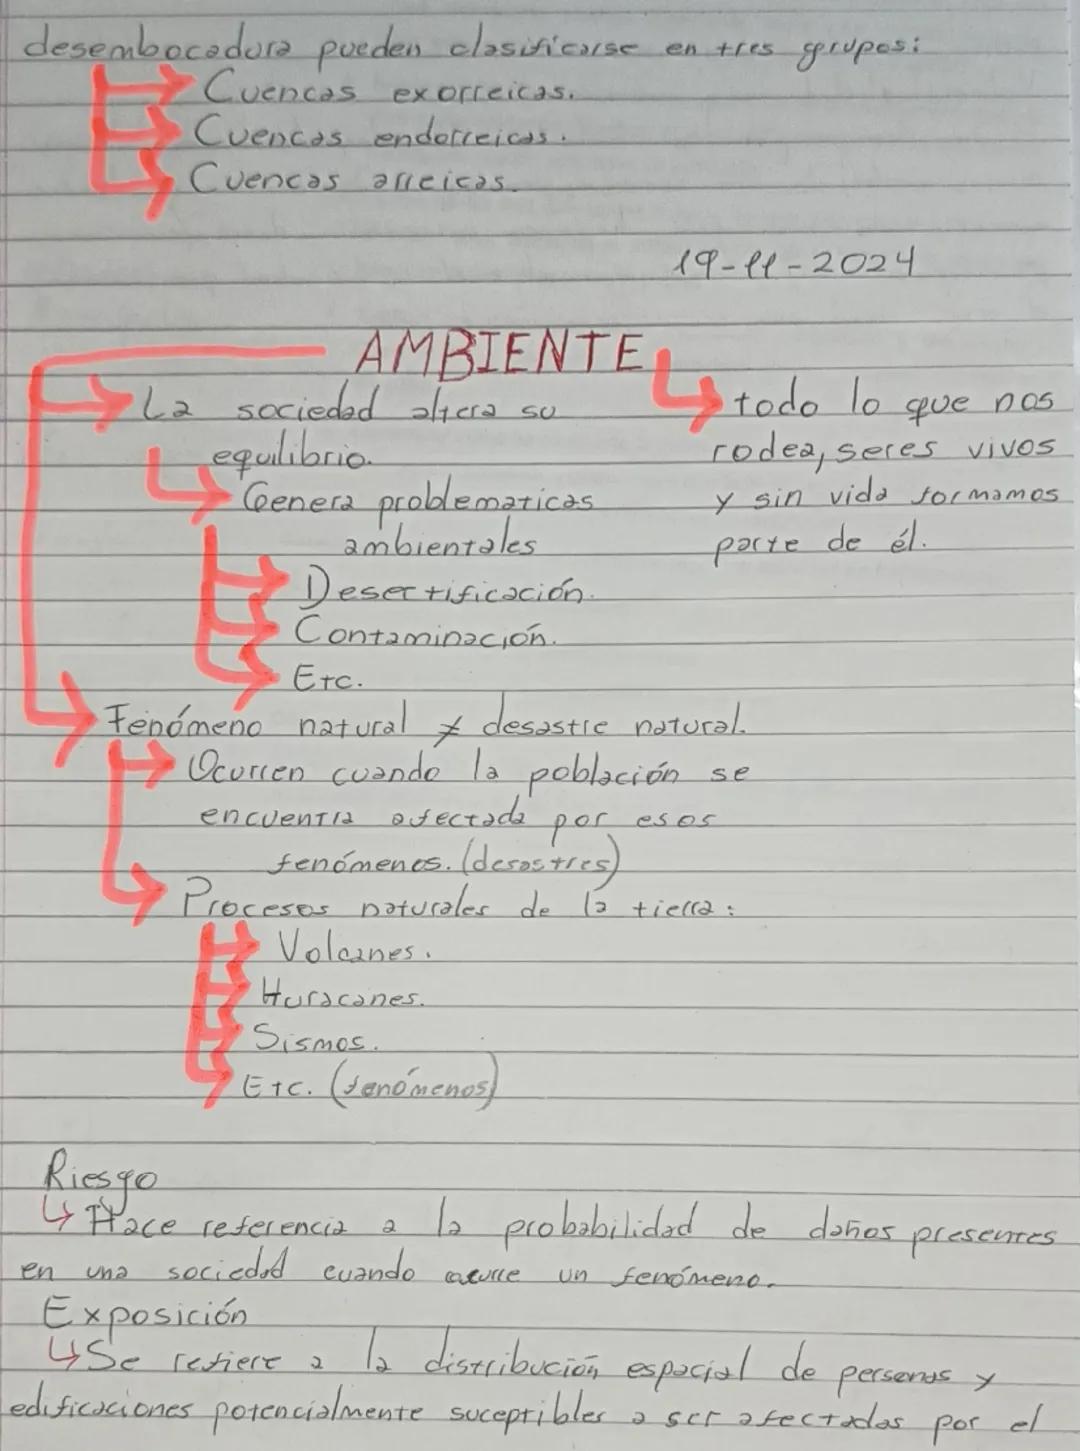 desembocadura pueden clasificarse en tres grupos:
Cuencas exorreicas.
Cuencas endorreicas.
Cuencas arreicas.
19-11-2024
AMBIENTE
La sociedad altera su
equilibrio.
Genera problematicas
ambientales
Desertificación.
Contaminación.
Etc.
todo lo que nos
rodea, seres vivos
y sin vida formamos
parte de él.
Fenómeno natural ≠ desastre natural.
Ocurren cuando la población se
encuentra afectada por esos
fenómenos. (desastres)
Procesos naturales de la tierra:
Volcanes.
Huracanes.
Sismos.
Etc. (fenómenos)
Riesgo
↳ Hace referencia a la probabilidad de daños presentes
en una sociedad cuando ocurre un fenómeno.
Exposición
↳ Se refiere a la distribución espacial de personas y
edificaciones potencialmente suceptibles a ser afectadas por el